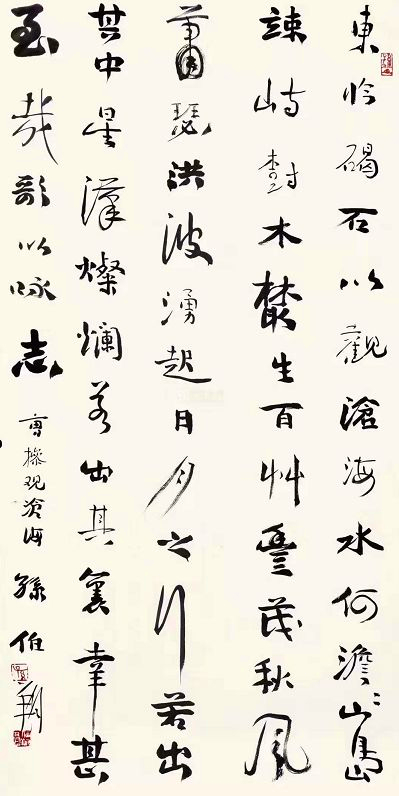 東臨碣石以觀滄海水何澹〻山島
竦峙樹木叢生百艸豐茂秋風
蕭瑟洪波湧起日月之行若出
其中星漢燦爛若出其裏幸甚
至哉歌以咏志
曹操观沧海 孫伯翔